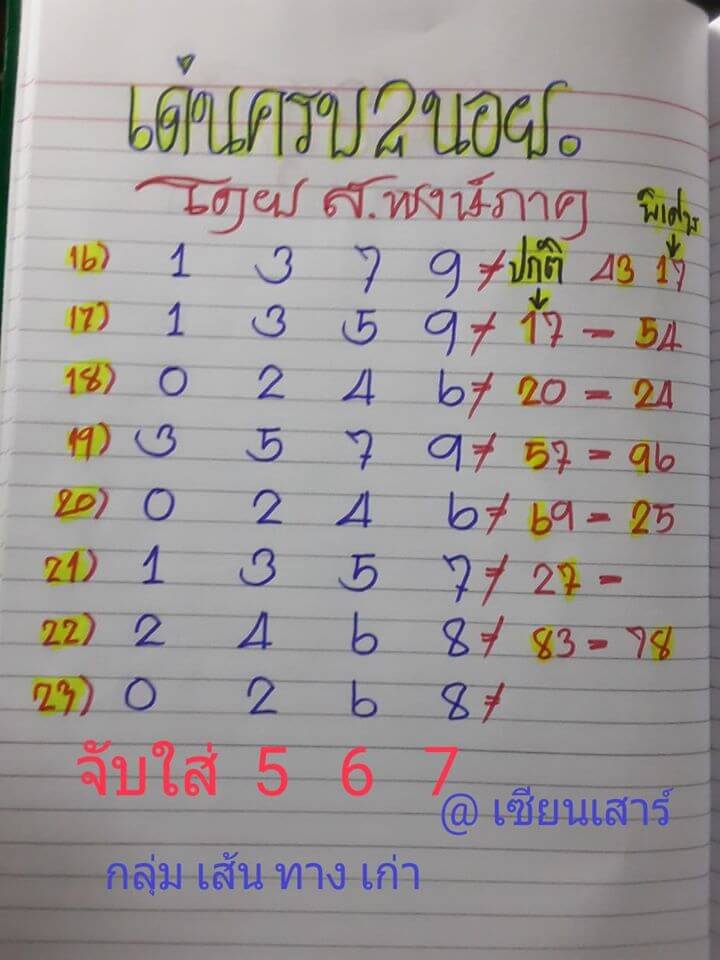 เด่นครบ2บอย.
โดย ส.พงษ์ภาค พิเศษ
16) 1 3 7 9 ≠ ปกติ 43 17
17) 1 3 5 9 ≠ 17 - 54
18) 0 2 4 6 ≠ 20 = 24
19) 3 5 7 9 ≠ 57 = 96
20) 0 2 4 6 ≠ 69 = 25
21) 1 3 5 7 ≠ 27 -
22) 2 4 6 8 ≠ 83 = 78
23) 0 2 6 8 ≠
จับใส่ 5 6 7
@ เซียนเสาร์
กลุ่ม เส้น ทาง เก่า